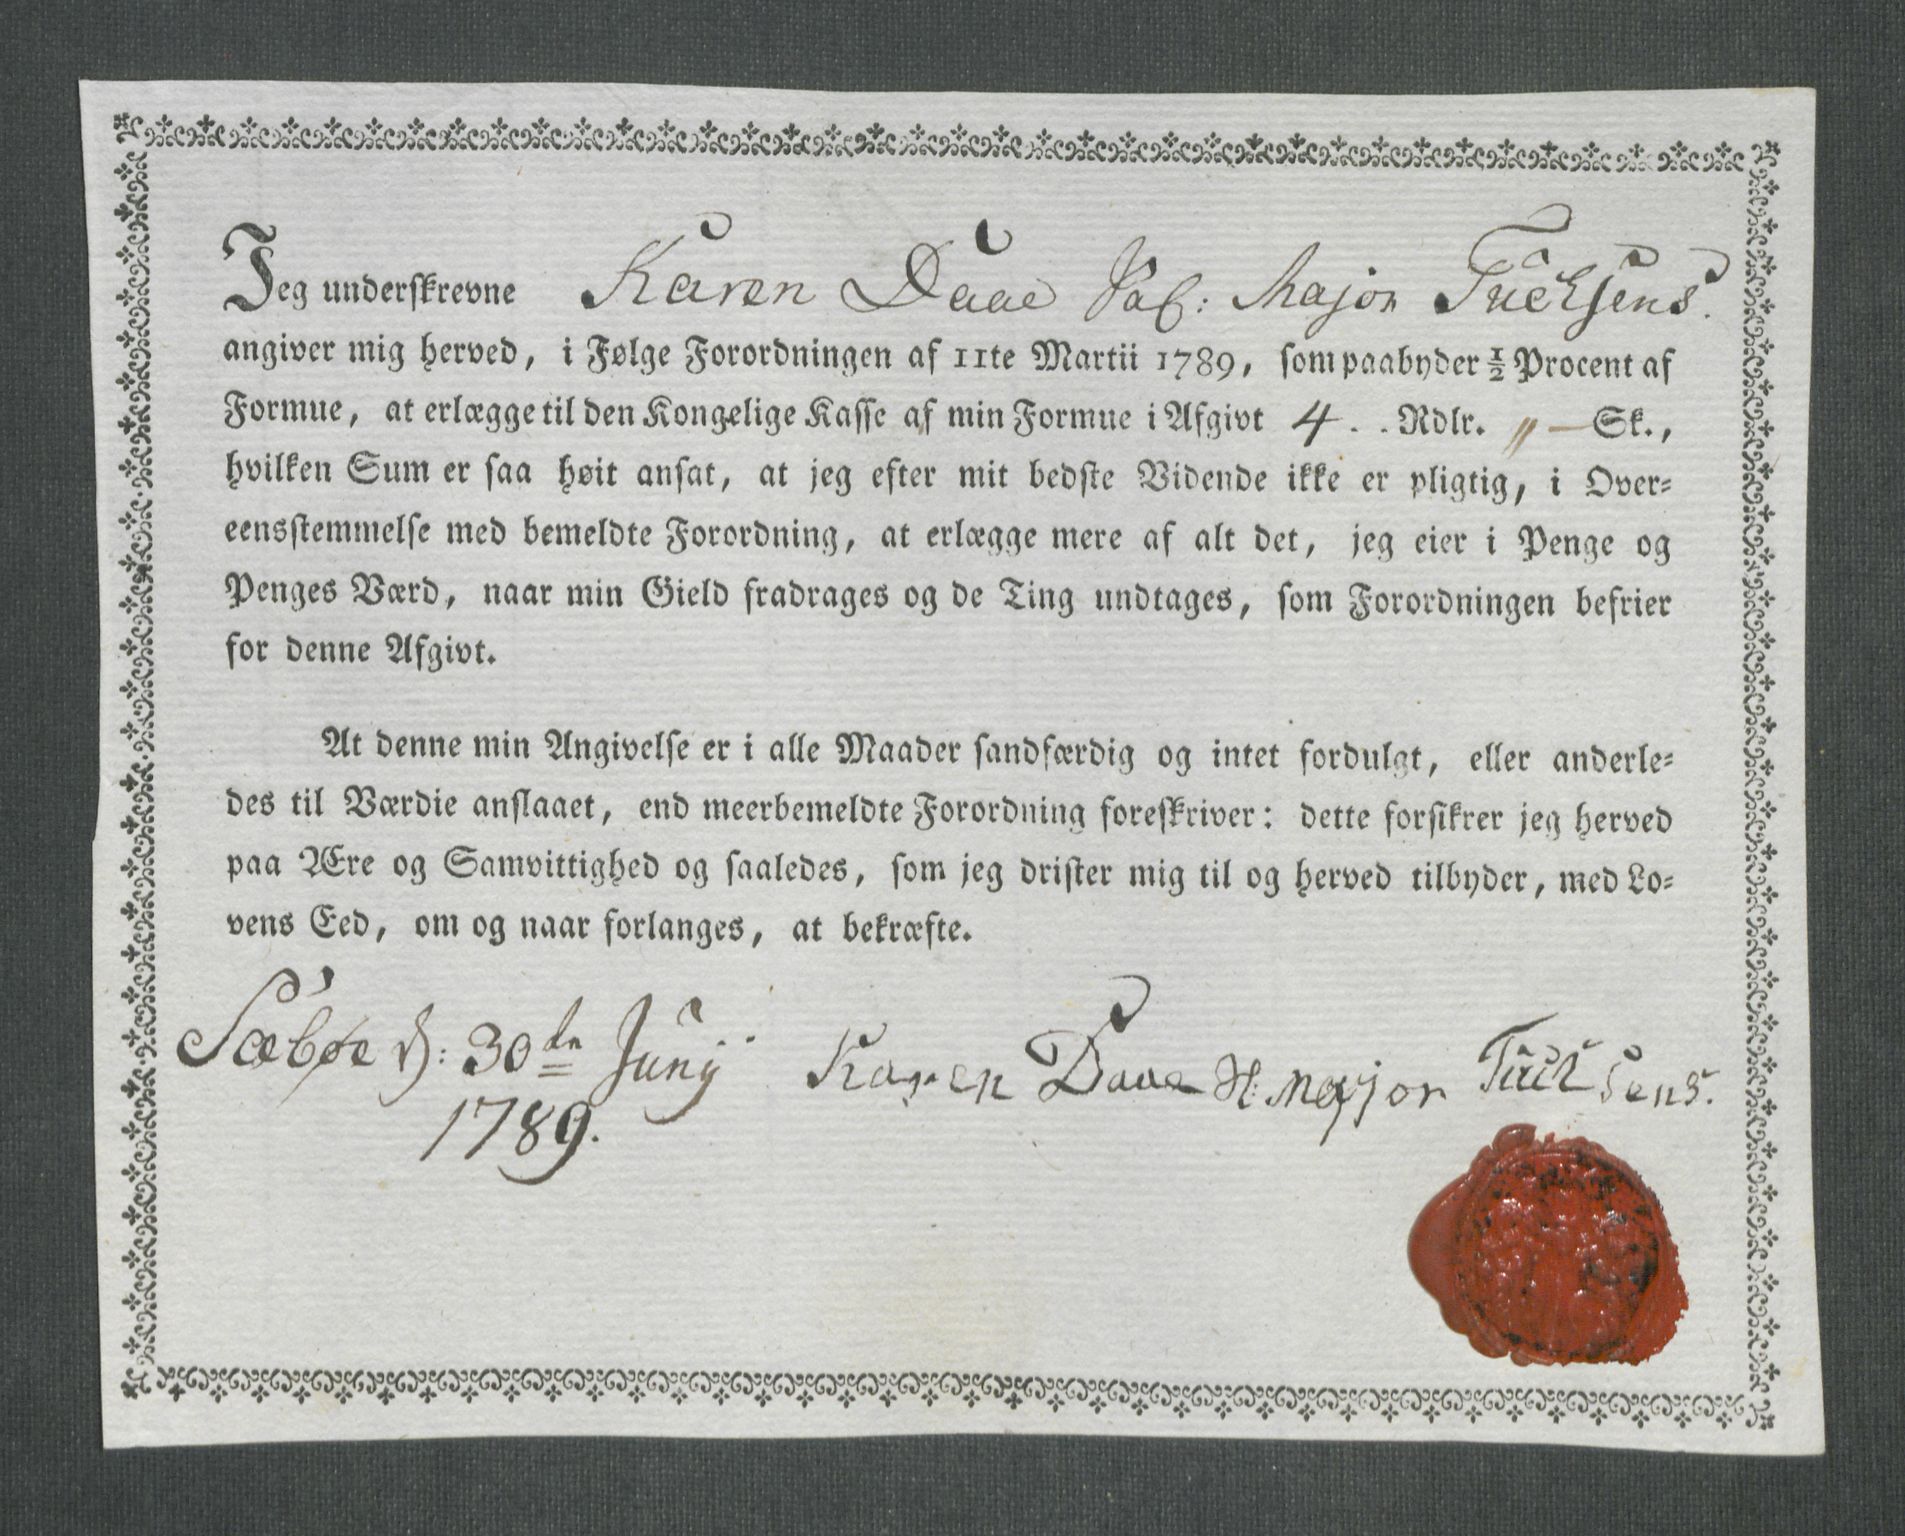 Jeg underskrevne Karen Daae Sal: Major Fuchsens.
angiver mig herved, i Følge Forordningen af 11te Martii 1789, som paabyder ½ Procent af
Formue, at erlægge til den Kongelige Kasse af min Formue i Afgivt 4 . . Rdlr. „ — Sk.,
hvilken Sum er saa høit ansat, at jeg efter mit bedste Vidende ikke er pligtig, i Over=
eensstemmelse med bemeldte Forordning, at erlægge mere af alt det, jeg eier i Penge og
Penges Værd, naar min Gield fradrages og de Ting undtages, som Forordningen befrier
for denne Afgivt.
At denne min Angivelse er i alle Maader sandfærdig og intet fordulgt, eller anderle=
des til Værdie anslaaet, end meerbemeldte Forordning foreskriver: dette forsikrer jeg herved
paa Ære og Samvittighed og saaledes, som jeg drister mig til og herved tilbyder, med Lo=
vens Eed, om og naar forlanges, at bekræfte.
Sæbøe d: 30te Junij Karen Daae Major Fuchsens.
1789.